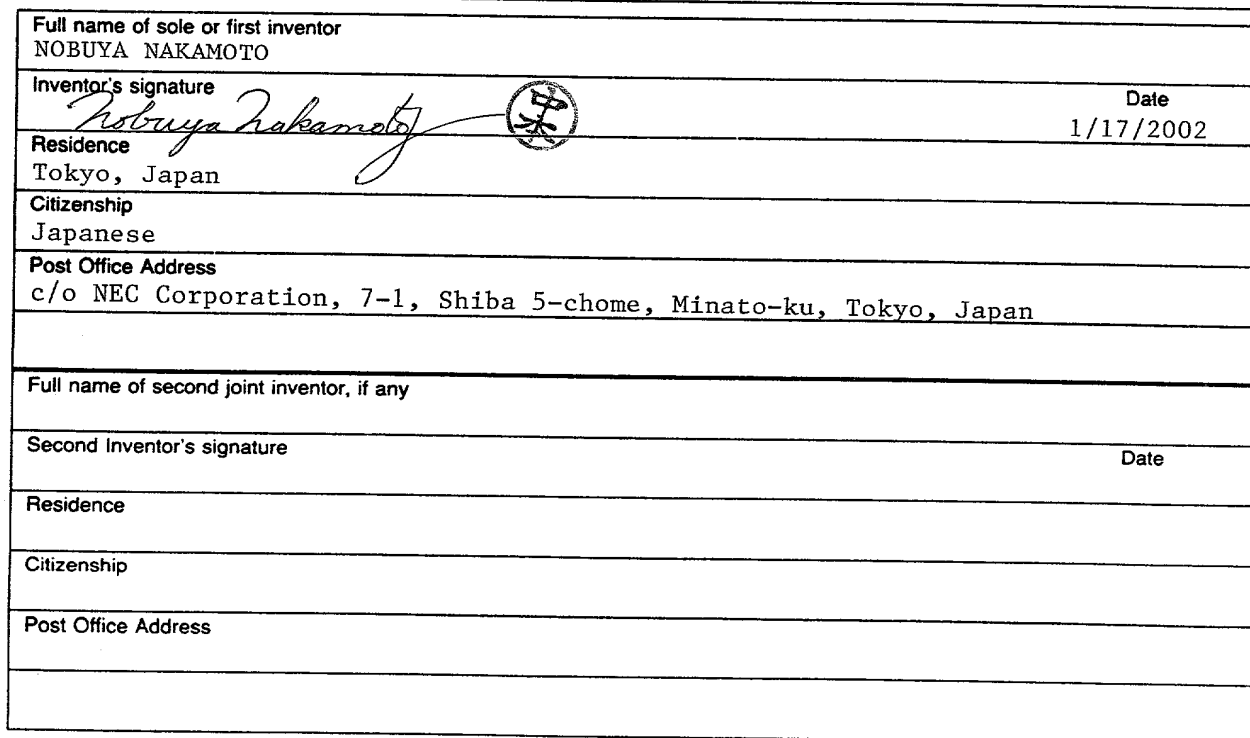 Full name of sole or first inventor
NOBUYA NAKAMOTO
Inventor's signature
Date
Nobuya Nakamoto
中本
1/17/2002
Residence
Tokyo, Japan
Citizenship
Japanese
Post Office Address
c/o NEC Corporation, 7-1, Shiba 5-chome, Minato-ku, Tokyo, Japan
Full name of second joint inventor, if any
Second Inventor's signature
Date
Residence
Citizenship
Post Office Address